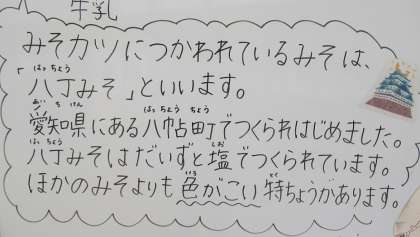 牛乳
みそカツにつかわれているみそは、
「八丁みそ」といいます。
愛知県にある八帖町でつくられはじめました。
八丁みそはだいずと塩でつくられています。
ほかのみそよりも色がこい特ちょうがあります。